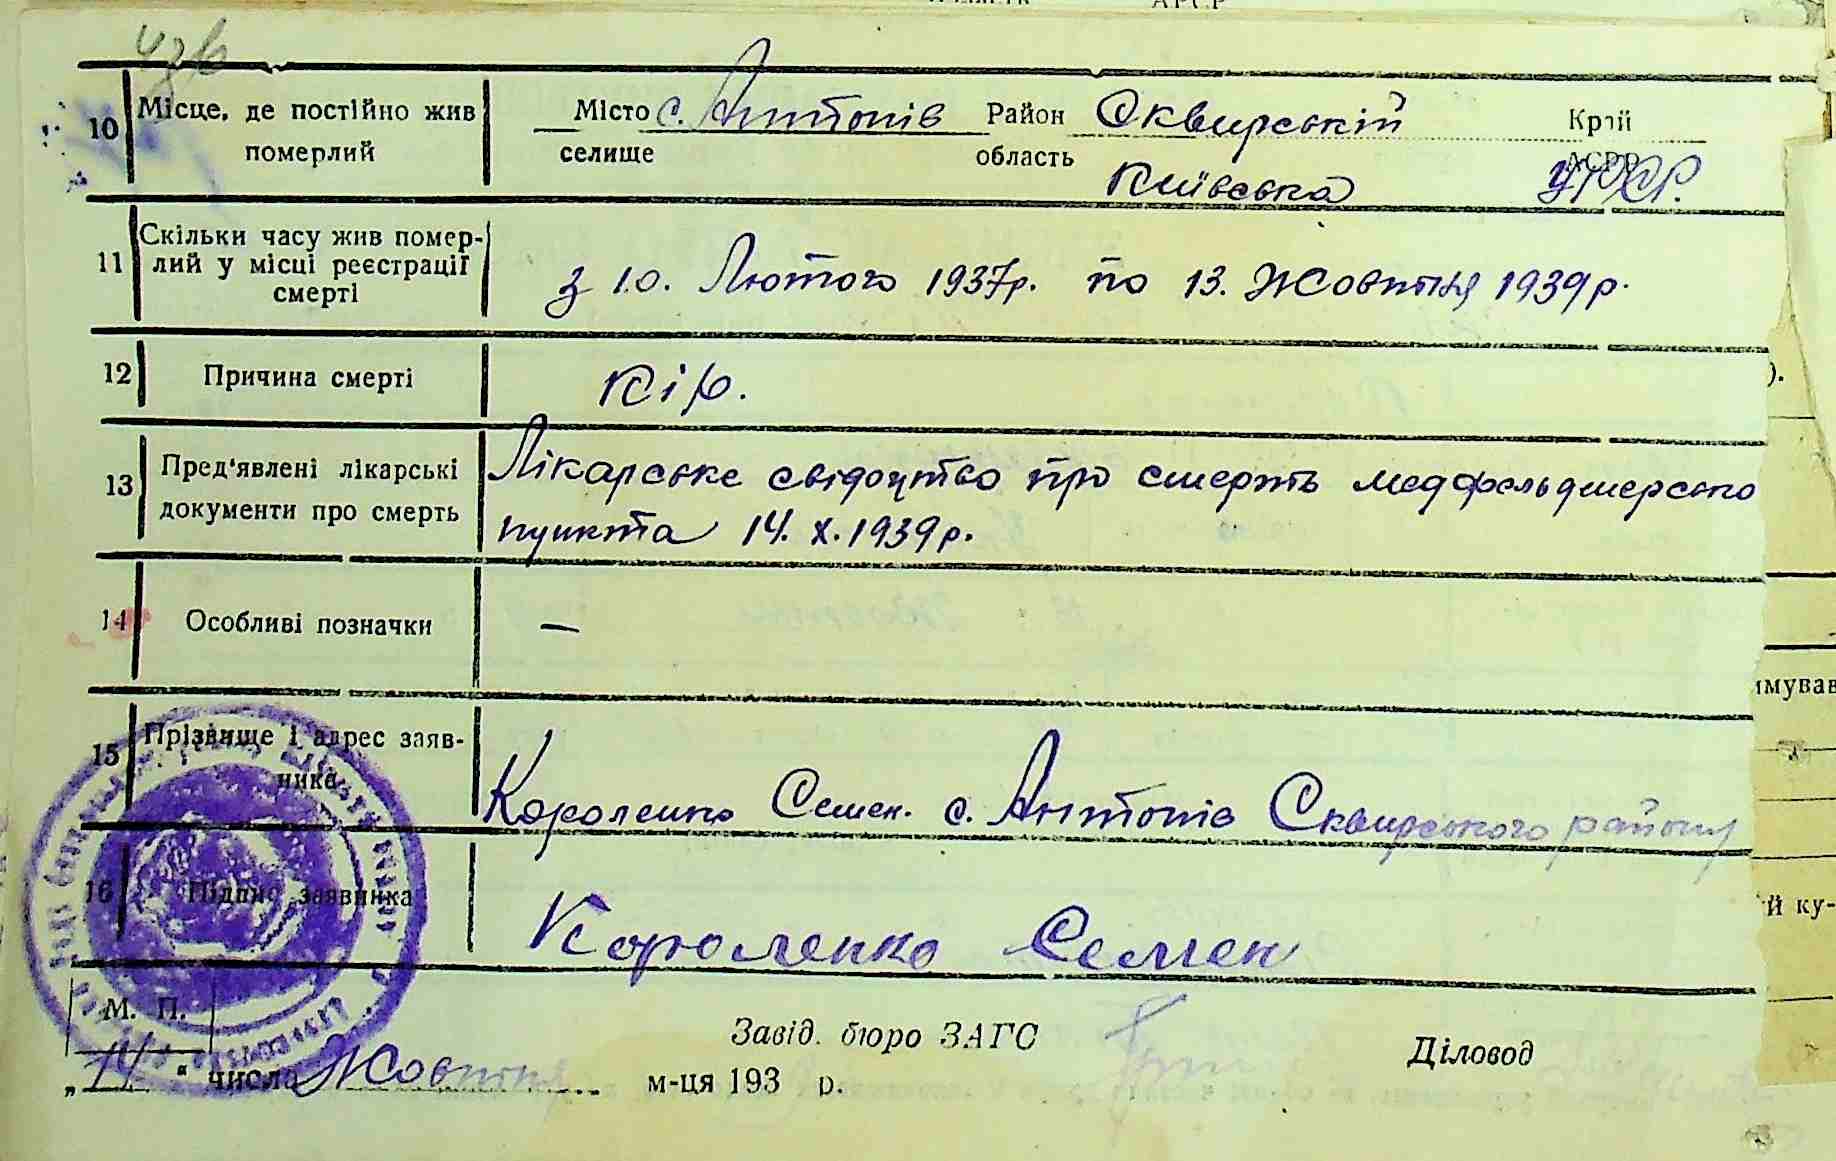 10 Місце, де постійно жив померлий Місто с. Антонів Район Сквирський Край
селище область Київська УРСР.
11 Скільки часу жив помер-
лий у місці реєстрації
смерті
з 10. Лютого 1937р. по 13. Жовтня 1939р.
12 Причина смерті Кір.
13 Пред'явлені лікарські
документи про смерть
Лікарське свідоцтво про смерть медфельдшерсько
пункта 14. X. 1939р.
14 Особливі позначки —
15 Прізвище і адрес заяв-
ника
Короленко Семен. с. Антонів Сквирського району
16 Підпис заявника Короленко Семен
М. П.
Завід. бюро ЗАГС Діловод
„14" числа Жовтня м-ця 193 р.
імував
й ку-